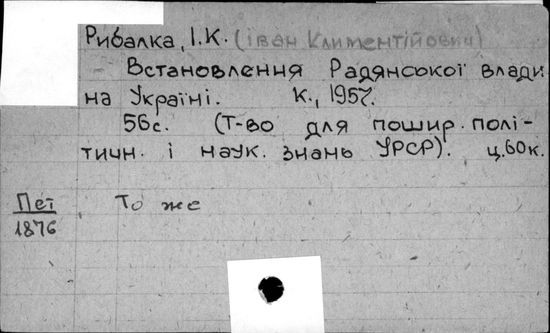 Рибалка, І.К. (Іван Климентійович)
Встановлення Радянської влади
на Україні. К., 1957.
56с. (Т-во для пошир. полі-
тичн. і наук. знань УРСР). ц.60к.
Пет То же
1876